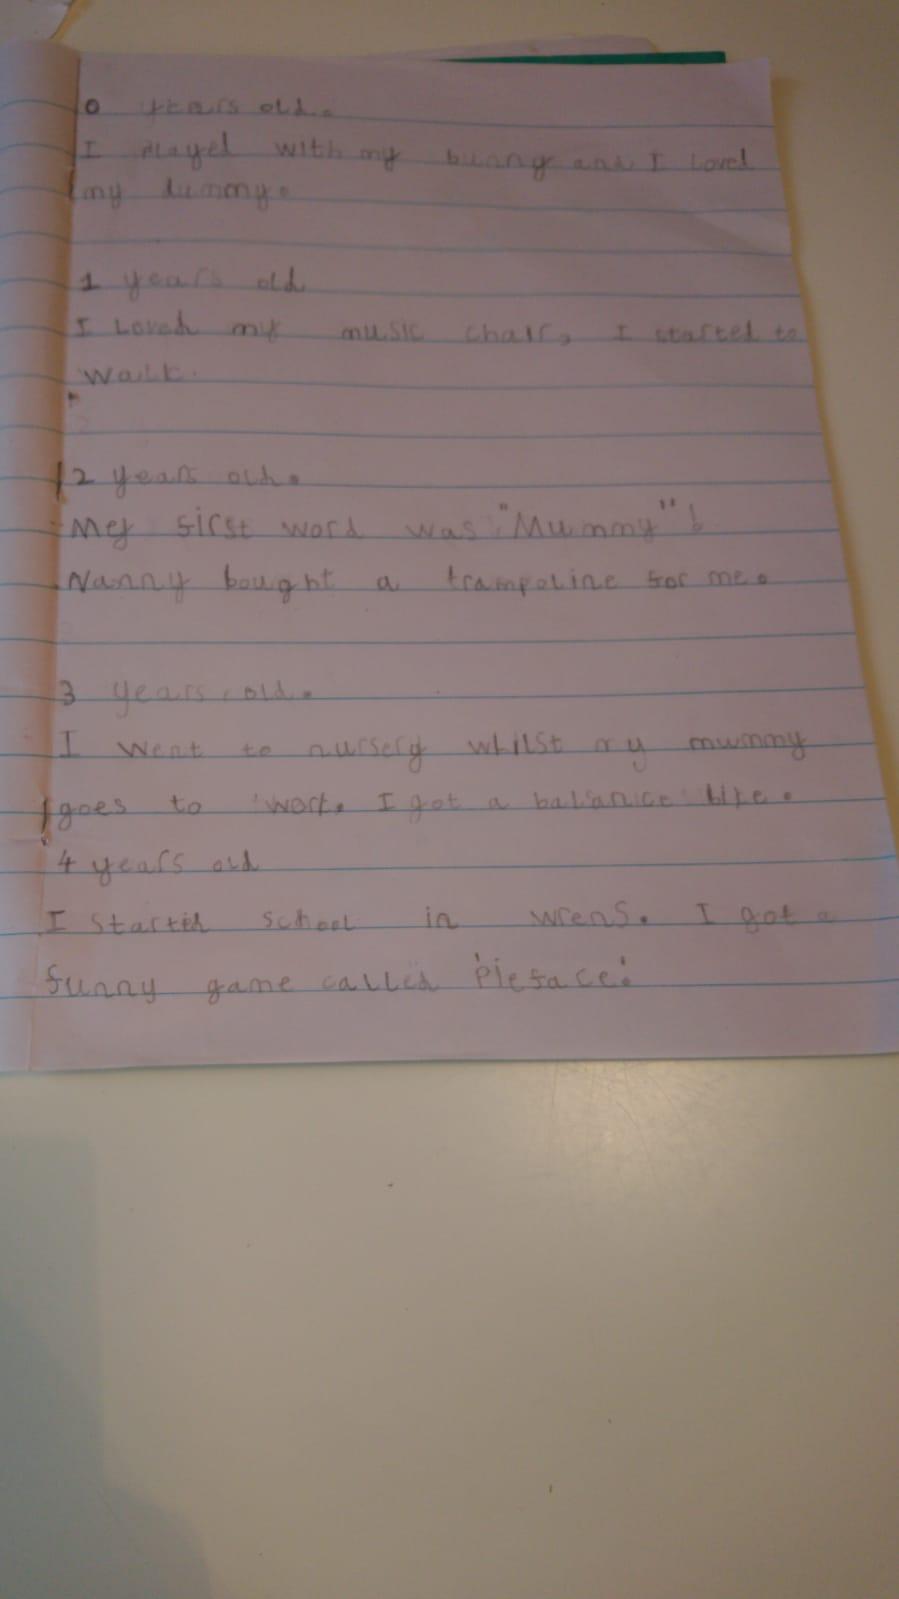 0 years old.
I played with my bunny and I loved
my dummy.
1 years old
I Loved my music chair, I started to
walk.
2 years old.
My first word was "Mummy"!
Nanny bought a trampoline for me.
3 years old.
I went to nursery whilst my mummy
goes to work. I got a balanice bike.
4 years old
I started school in wrens. I got a
funny game called 'Pieface'.